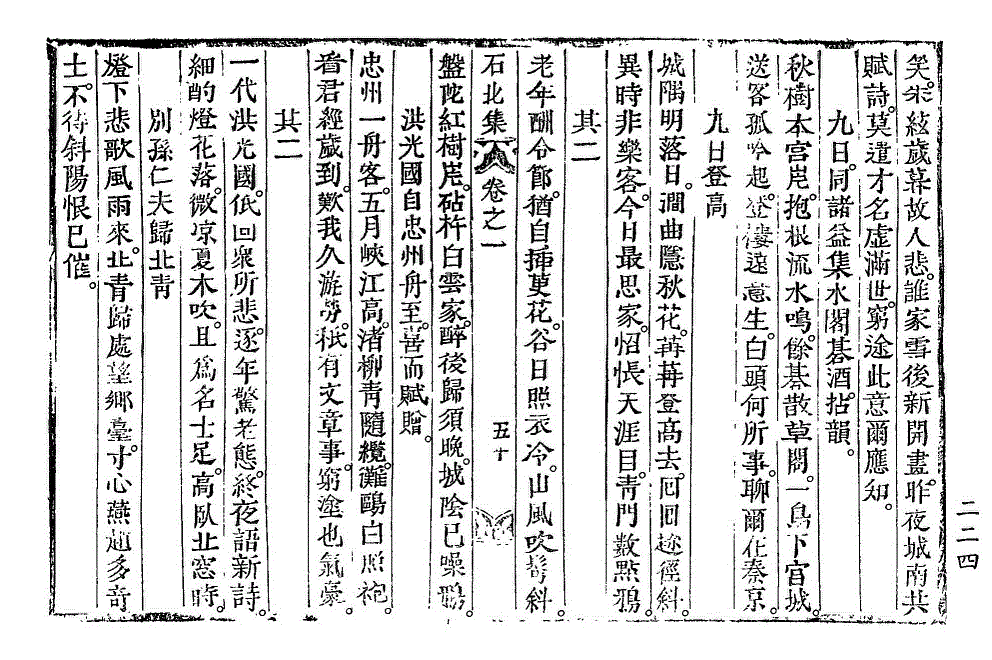 矣。朱絃歲暮故人悲。誰家雪後新開盡。昨夜城南共
賦詩。莫遣才名虛滿世。窮途此意爾應知。
九日。同諸益集水閣碁酒拈韻。
秋樹本宮岸。抱根流水鳴。餘碁散草閣。一鳥下官城。
送客孤吟起。登樓遠意生。白頭何所事。聊爾在秦京。
九日登高
城隅明落日。澗曲隱秋花。苒苒登高去。回回遊徑斜。
異時非樂客。今日最思家。怊悵天涯目。靑門數點鴉。
其二
老年酬令節。猶自揷茰花。谷日照衣冷。山風吹髩斜。
石北集 卷之一 五十
盤陀紅樹岸。砧杵白雲家。醉後歸須晚。城陰已噪鴉。
洪光國自忠州舟至。喜而賦贈。
忠州一舟客。五月峽江高。渚柳靑隨纜。灘鷗白照袍。
看君經歲到。歎我久游勞。秪有文章事。窮塗也氣豪。
其二
一代洪光國。低回衆所悲。逐年驚老態。終夜語新詩。
細酌燈花落。微凉夏木吹。且爲名士足。高臥北窓時。
別孫仁夫歸北靑
燈下悲歌風雨來。北靑歸處望鄉臺。寸心燕趙多奇
士。不待斜陽恨已催。
二二四